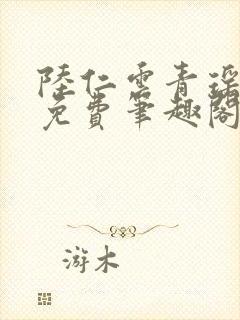 陸仁雲青瑤
免費筆趣閣
游木